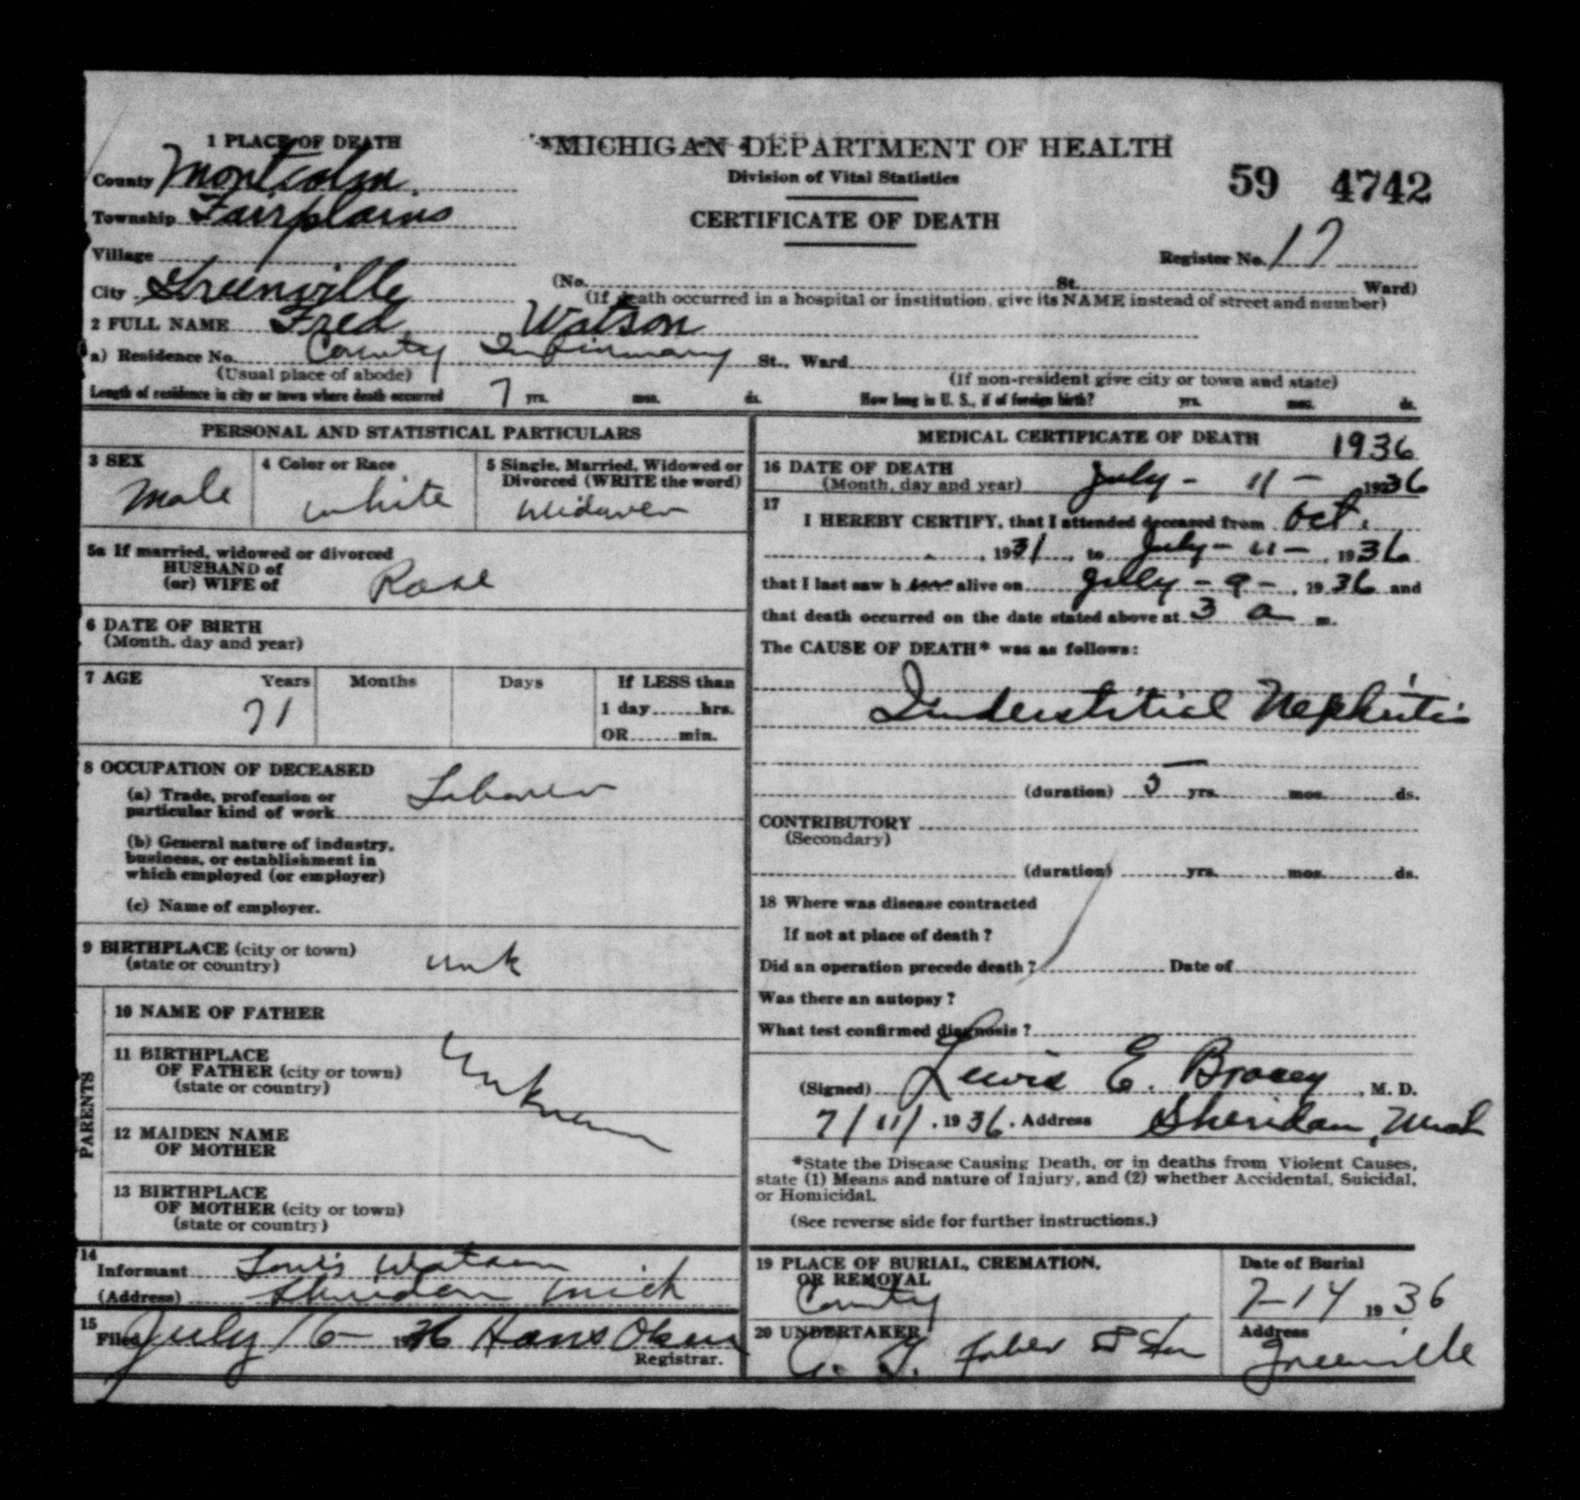 1 PLACE OF DEATH
MICHIGAN DEPARTMENT OF HEALTH
Division of Vital Statistics
CERTIFICATE OF DEATH
59 4742
County Montcalm
Township Fairplains
Village
Register No. 17
City Greenville
(No. St. Ward)
(If death occurred in a hospital or institution, give its NAME instead of street and number)
2 FULL NAME Fred Watson
a) Residence No. County Infirmary St., Ward
(Usual place of abode)
(If non-resident give city or town and state)
Length of residence in city or town where death occurred 7 yrs. mos. ds.
How long in U. S., if of foreign birth? yrs. mos. ds.
PERSONAL AND STATISTICAL PARTICULARS
3 SEX
Male
4 Color or Race
White
5 Single, Married, Widowed or
Divorced (WRITE the word)
Widower
5a If married, widowed or divorced
HUSBAND of
(or) WIFE of
Rose
6 DATE OF BIRTH
(Month, day and year)
7 AGE Years Months Days
71
If LESS than
1 day hrs.
OR min.
8 OCCUPATION OF DECEASED
(a) Trade, profession or
particular kind of work
Laborer
(b) General nature of industry,
business, or establishment in
which employed (or employer)
(c) Name of employer.
9 BIRTHPLACE (city or town)
(state or country)
unk
PARENTS
10 NAME OF FATHER
11 BIRTHPLACE
OF FATHER (city or town)
(state or country)
Unknown
12 MAIDEN NAME
OF MOTHER
13 BIRTHPLACE
OF MOTHER (city or town)
(state or country)
14
Informant Louis Watson
(Address) Sheridan Mich
15
Filed July 16 - 1936 Hans Olsen
Registrar.
MEDICAL CERTIFICATE OF DEATH 1936
16 DATE OF DEATH
(Month, day and year) July - 11 - 1936
17
I HEREBY CERTIFY, that I attended deceased from Oct.
, 1931, to July - 11 - , 1936
that I last saw h im alive on July - 9 - , 1936 and
that death occurred on the date stated above at 3 a m.
The CAUSE OF DEATH* was as follows:
Interstitial Nephritis
(duration) 5 yrs. mos. ds.
CONTRIBUTORY
(Secondary)
(duration) yrs. mos. ds.
18 Where was disease contracted
If not at place of death?
Did an operation precede death? Date of
Was there an autopsy?
What test confirmed diagnosis?
(Signed) Lewis E. Bracey, M. D.
7/11/. 1936. Address Sheridan, Mich
*State the Disease Causing Death, or in deaths from Violent Causes,
state (1) Means and nature of Injury, and (2) whether Accidental, Suicidal,
or Homicidal.
(See reverse side for further instructions.)
19 PLACE OF BURIAL, CREMATION,
OR REMOVAL
County
Date of Burial
7-14 1936
20 UNDERTAKER
Faber & Son
Address
Greenville